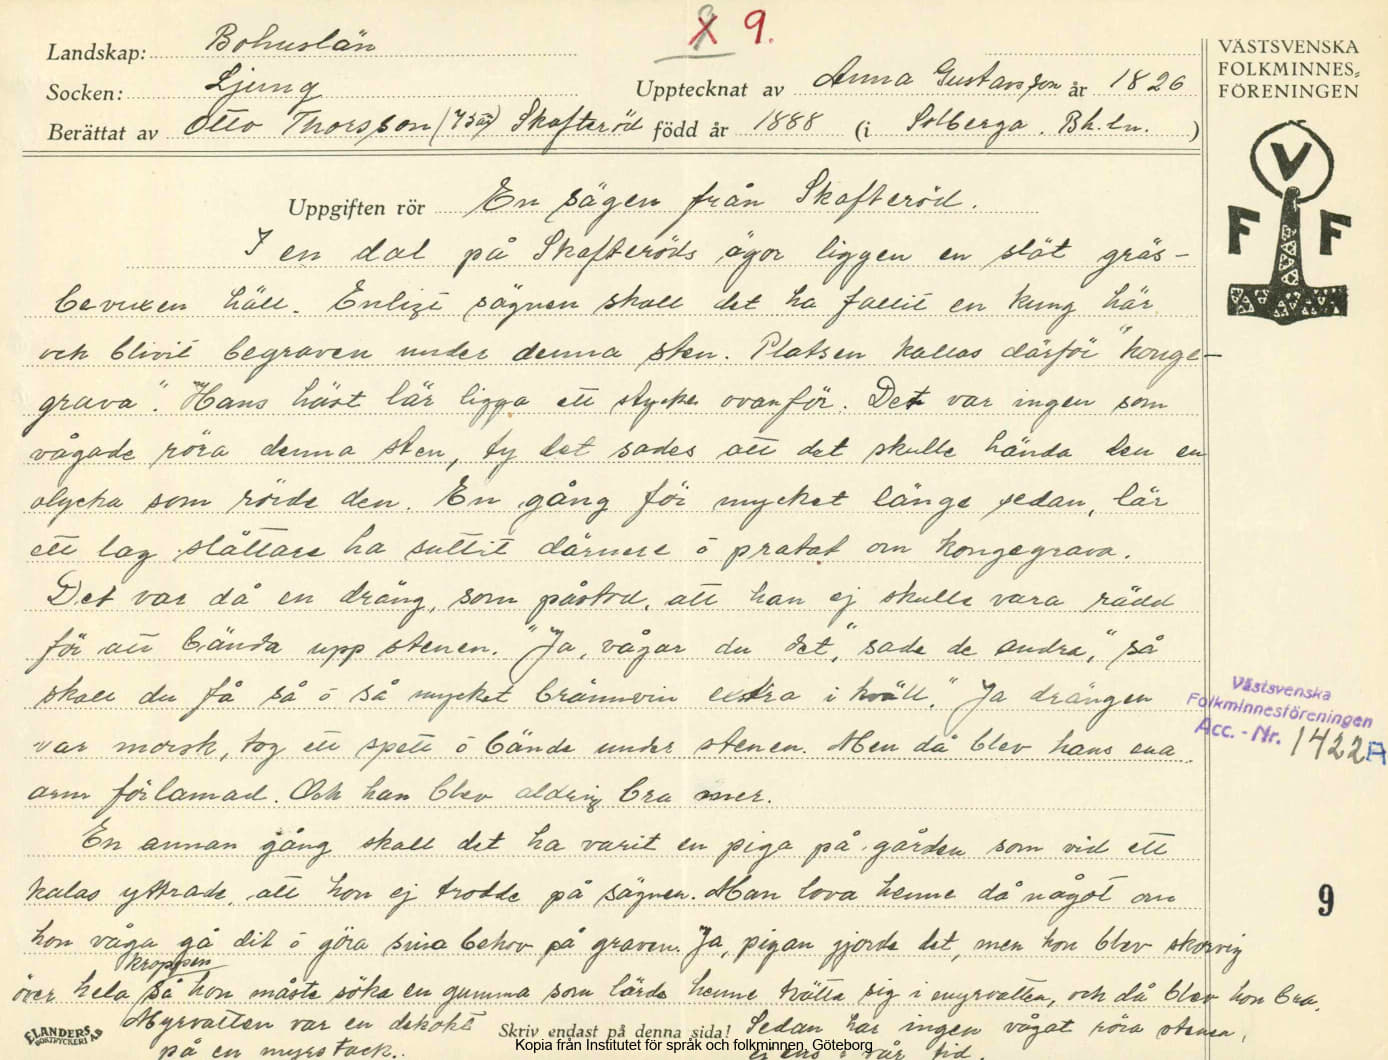 9 9.
Landskap: Bohuslän
Socken: Ljung Upptecknat av Anna Gustavsson år 1826
Berättat av Otto Thorsson Skafteröd född år 1888 (i Solberga. Bh.ln. )
VÄSTSVENSKA
FOLKMINNES=
FÖRENINGEN
V
F F
Uppgiften rör En sägen från Skafteröd.
I en dal på Skafteröds ägor ligger en slät gräs-
bevuxen häll. Enligt sägnen skall det ha fallit en kung här
och blivit begraven under denna sten. Platsen kallas därför "konge-
grava". Hans häst lär ligga ett stycke ovanför. Det var ingen som
vågade röra denna sten, ty det sades att det skulle hända den en
olycka som rörde den. En gång för mycket länge sedan, lär
ett lag slåttare ha suttit därnere ó pratat om kongegrava.
Det var då en dräng, som påstod, att han ej skulle vara rädd
för att bända upp stenen. "Ja, vågar du det," sade de andra, "så
skall du få så ó så mycket brännvin extra i kväll." Ja drängen
var morsk, tog ett spett ó bände under stenen. Men då blev hans ena
arm förlamad. Och han blev aldrig bra mer.
En annan gång skall det ha varit en piga på gården som vid ett
kalas yttrade, att hon ej trodde på sägnen. Man lova henne då något om
hon våga gå dit ó göra sina behov på graven. Ja, pigan gjorde det, men hon blev skorvig
över hela kroppen så hon måste söka en gumma som lärde henne tvätta sig i myrvatten, och då blev hon bra.
Myrvatten var en dekokt
på en myrstack.
Sedan har ingen vågat röra stenen,
ej ens i vår tid.
ELANDERS
BOKTRYCKERI AB
Skriv endast på denna sida!
Västsvenska
Folkminnesföreningen
Acc. - Nr. 1422 A
9
Kopia från Institutet för språk och folkminnen, Göteborg